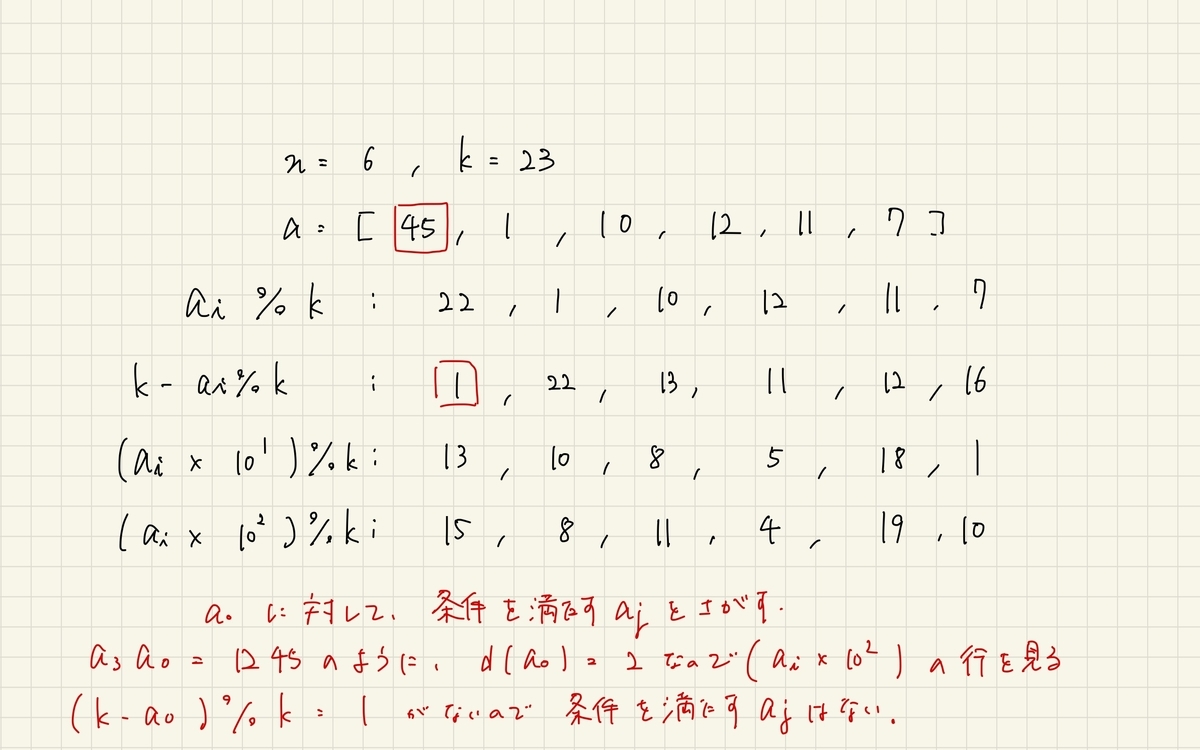 n = 6 , k = 23
a = [ 45 , 1 , 10 , 12 , 11 , 7 ]
ai % k : 22 , 1 , 10 , 12 , 11 , 7
k - ai % k : 1 , 22 , 13 , 11 , 12 , 16
(ai × 10¹) % k : 13 , 10 , 8 , 5 , 18 , 1
(ai × 10²) % k : 15 , 8 , 11 , 4 , 19 , 10
a₀ に対して、条件を満たす aj をさがす.
a₃ a₀ = 1245 のように、d(a₀) = 2 なので (ai × 10²) の行を見る
(k - a₀) % k = 1 がないので 条件を満たす aj はない.